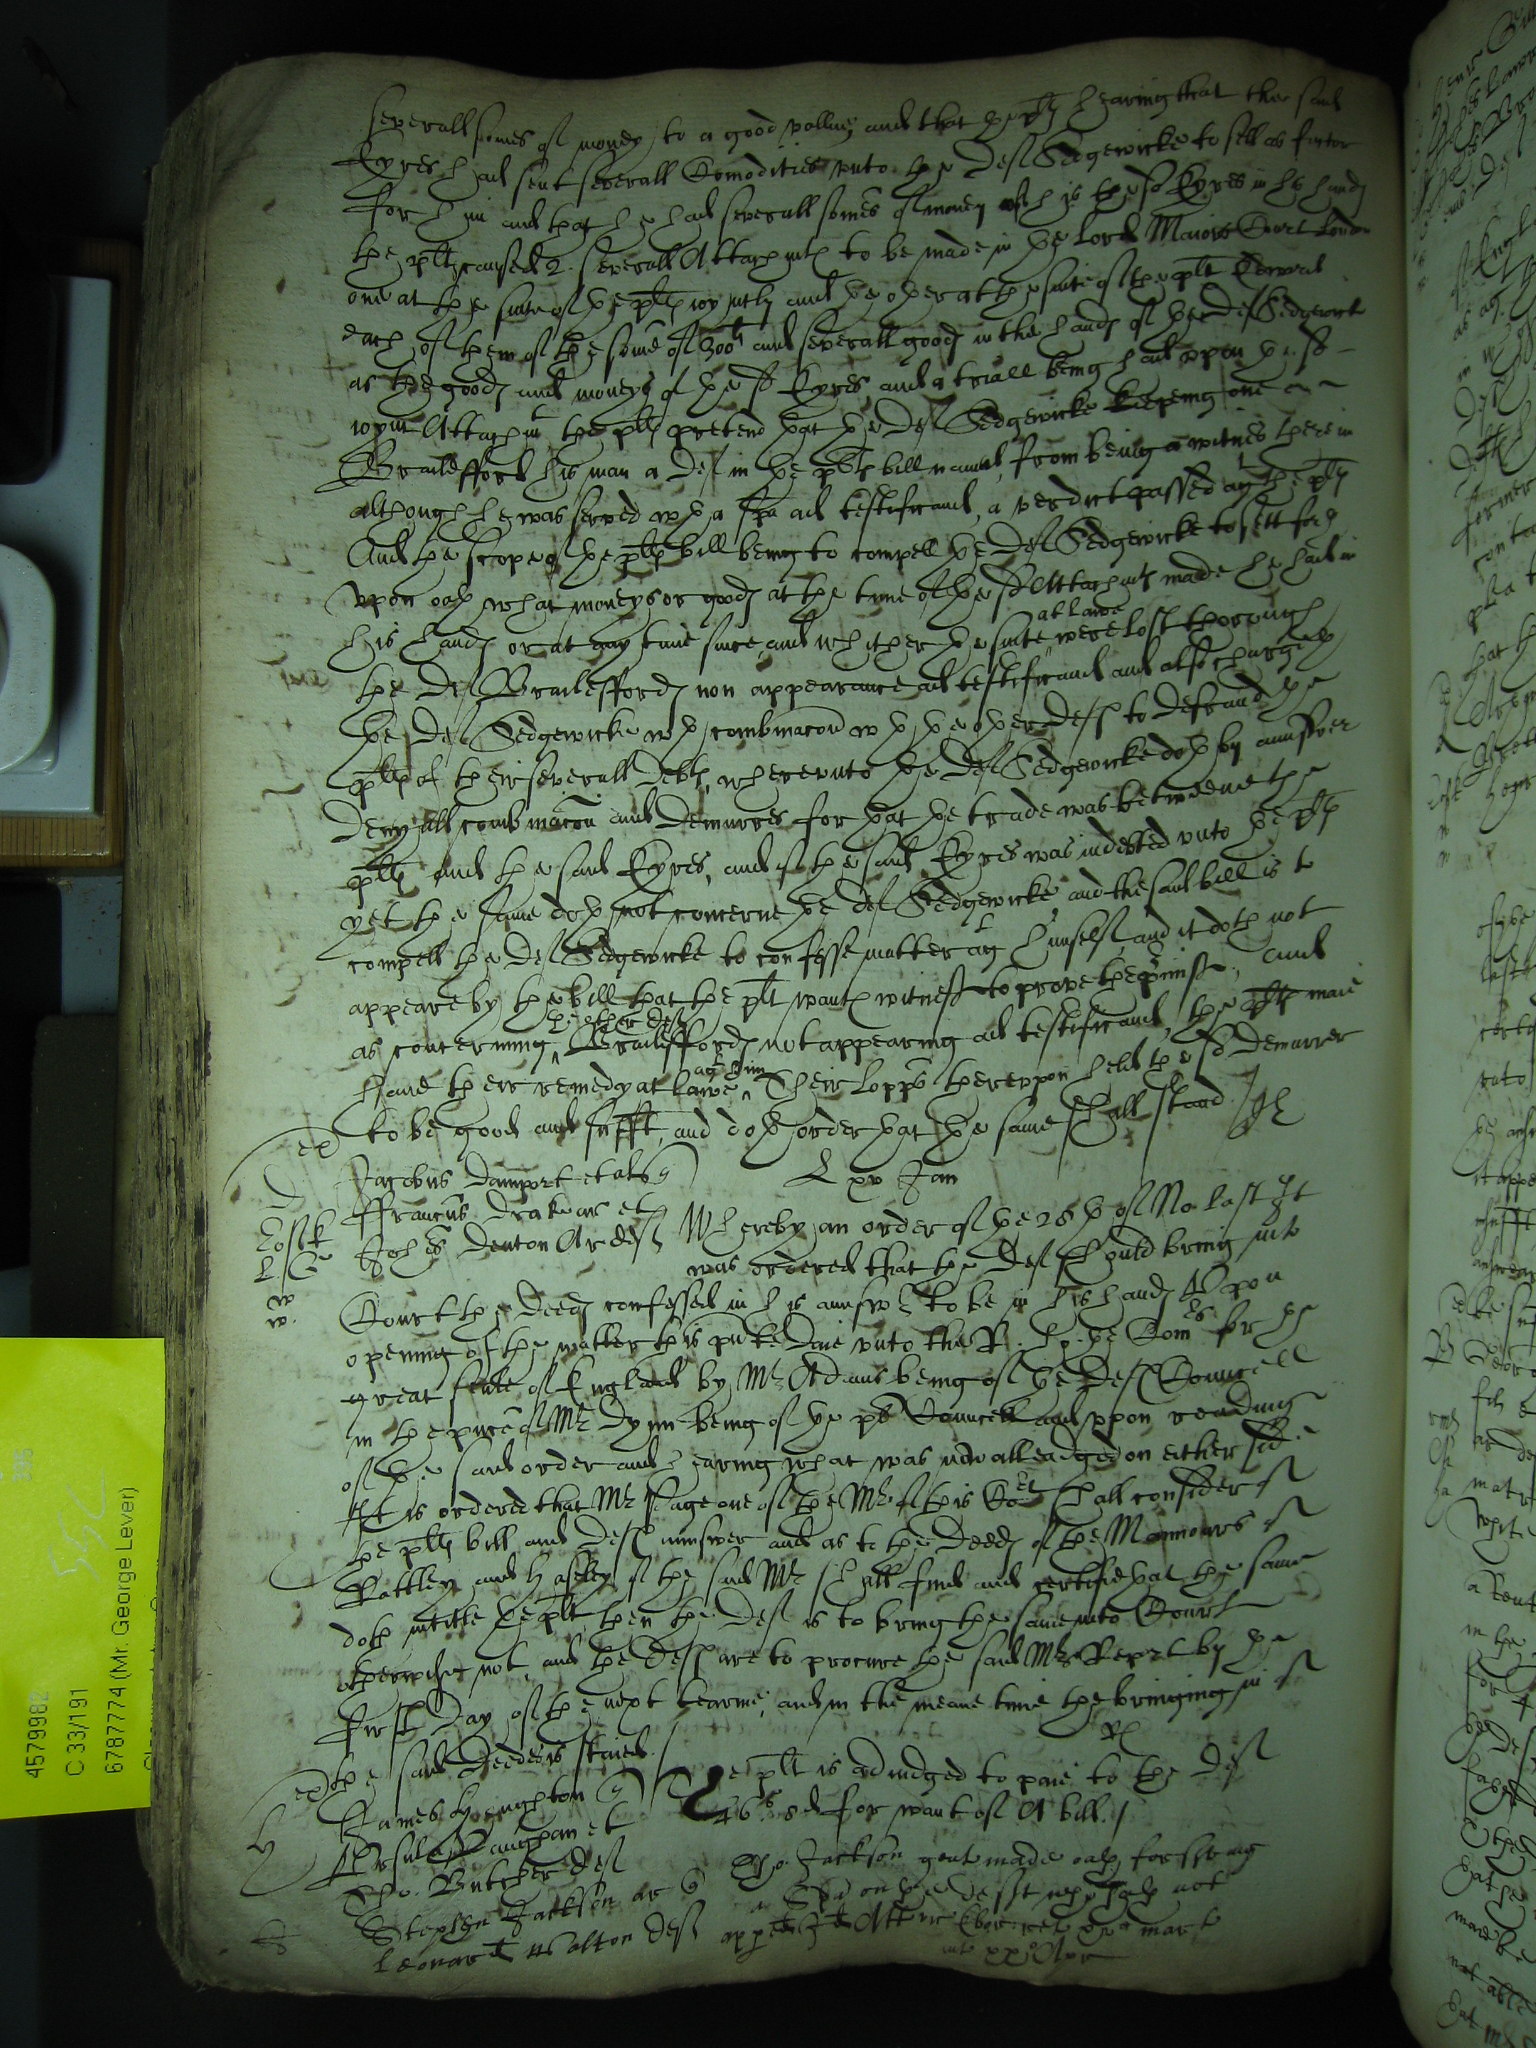 severall somes of money to a good vallue, and that the plts hearing that the said
Eyres had sent severall Comodities unto the def Sedgewicke to sell as factor
for him and that he had severall somes of money of his the sd Eyres in his hands
the plts caused 2. severall Attachmts to be made in the Lord Maiors Court London
one at the suite of the plts joyntly and the other at the suite of the plt
each of them of the some of 300l and severall goods in the hands of the def Sedgewick
as the goods and moneys of the sd Eyres, and a triall being had uppon the sd
joynt Attachmt the plts pretend that the def Sedgewicke keepeing one
Brailefford his man a def in the plts bill named, from being a witnes therein
although he was served wth a spa ad testificand, a verdict passed agt the plts
And the scope of the plts bill being to compell the def Sedgewicke to sett forth
upon oath what moneys or goods at the time of the sd Attachmts made he had in
his hands or at any time since, and whether the suite at Lawe were lost thorough
the def Braileffords non appearance ad testificand and also chargeth
the def Sedgewicke wth combinacon wth the other defts to defraud the
plts of their severall debts, whereunto the def Sedgewicke doth by aunswer
deny all combinacon and demurres for that the trade was betweene the
plts and the said Eyres, and if the said Eyres was indebted unto the plts
yet the same doth not concerne the def Sedgewicke and the said bill is to
compell the def Sedgewicke to confesse matter agt himself and it doth not
appeare by the bill that the plt wants witness to prove the pmiss, and
as concerning the other def Braileffords not appearing ad testificand, the plts maie
have their remedy at lawe agt him, Their Lopps thereupon held the sd demurrer
to be good and sufft, and doth order that the same shall stand
Jacobus Damport et al
Franciscus Drake ar et
Johes Denton Ar defts
L xxv Jan
Whereby an order of the 28th of No. last It
was ordered that the def should bring into
Court the deeds confessed in his answ to be in his hands Upon
opening of the matter this pnte daie unto the R. ho. the Comrs for the
great seale of England by Mr Adams being of the defts Councell
in the pnce of Mr Dynn being of the pts Councell and uppon reading
of the said order and hearing what was now alleadged on either side
It is ordered that Mr Page one of the Mrs of this Cort shall consider of
the plts bill and defts answer and as to the deeds of the Mannours of
and Haseley if the said Mr shall find and certifie that the same
doth intitle the plt, then the def is to bring the same into Court
otherwise not, and the defts are to procure the said Mrs Report by the
first day of the next tearme, and in the meane time the bringing in of
the said deedes is staied.
James
Ursula Vaughan et
Tho. Butcher def
The plt is adiudged to paie to the def
46s. 8d for want of A bill.
Stephen Jackson ar
Leonard Walton def
Tho. Jackson gent made oath for serving
a Spa on the deft who hath not
appeared
4579982
C 33/191
6787774 (Mr. George Lever)